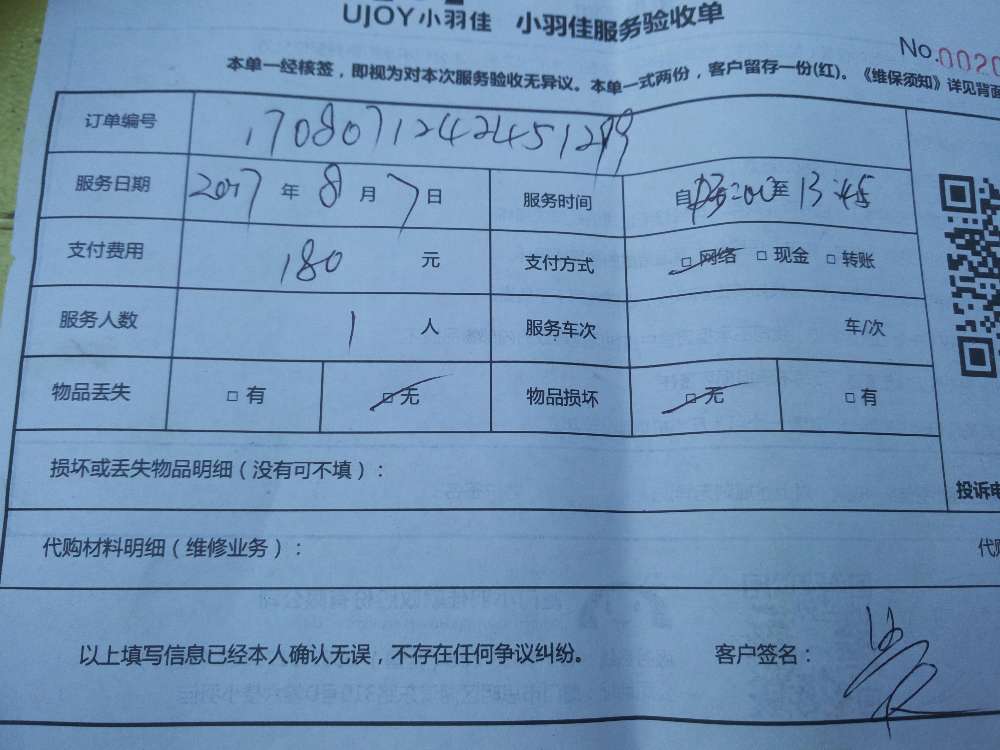 UJOY小羽佳 小羽佳服务验收单
No.0020
本单一经核签，即视为对本次服务验收无异议。本单一式两份，客户留存一份(红)。《维保须知》详见背面
订单编号 170807124245129
服务日期 2017 年 8 月 7 日 服务时间 自 :00 至 13:45
支付费用 180 元 支付方式 □ 网络 □ 现金 □ 转账
服务人数 1 人 服务车次 车/次
物品丢失 □ 有 □ 无 物品损坏 □ 无 □ 有
损坏或丢失物品明细（没有可不填）：
投诉电
代购材料明细（维修业务）：
代购
以上填写信息已经本人确认无误，不存在任何争议纠纷。 客户签名：